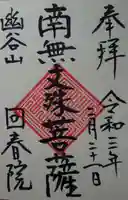 奉拝 令和三年二月二十一日
南無文殊菩薩
幽谷山 回春院